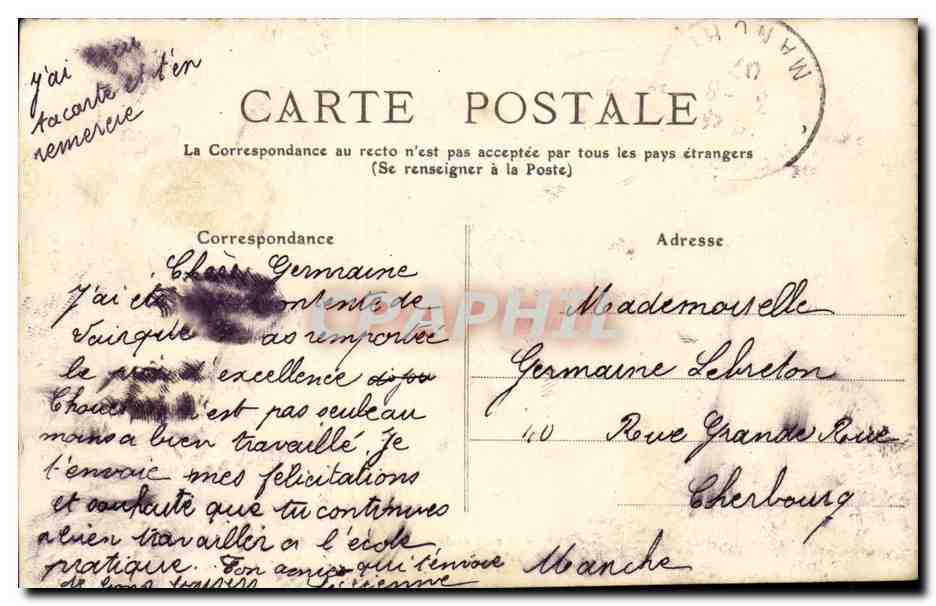 J'ai reçu
ta carte et t'en
remercie
MANCHE
CARTE POSTALE
La Correspondance au recto n'est pas acceptée par tous les pays étrangers
(Se renseigner à la Poste)
Correspondance
Chère Germaine
J'ai été contente de
voir que as remportée
le prix d'excellence
n'est pas seule au
moins a bien travaillé. Je
t'envoie mes félicitations
et souhaite que tu continues
a bien travailler a l'école
pratique. Ton amie qui t'envoie
de bons baisers
Adresse
Mademoiselle
Germaine Lebreton
40 Rue Grande Rue
Cherbourg
Manche
CPAPHIL